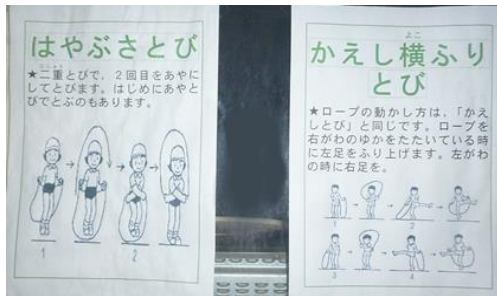 はやぶさとび
★二重とびで、2回目をあやに
してとびます。はじめにあやと
びでとぶのもあります。
1
2
かえし横ふり
とび
よこ
★ロープの動かし方は、「かえ
しとび」と同じです。ロープを
右がわのゆかをたたいている時
に左足をふり上げます。左がわ
の時に右足を。
1
2
3
4